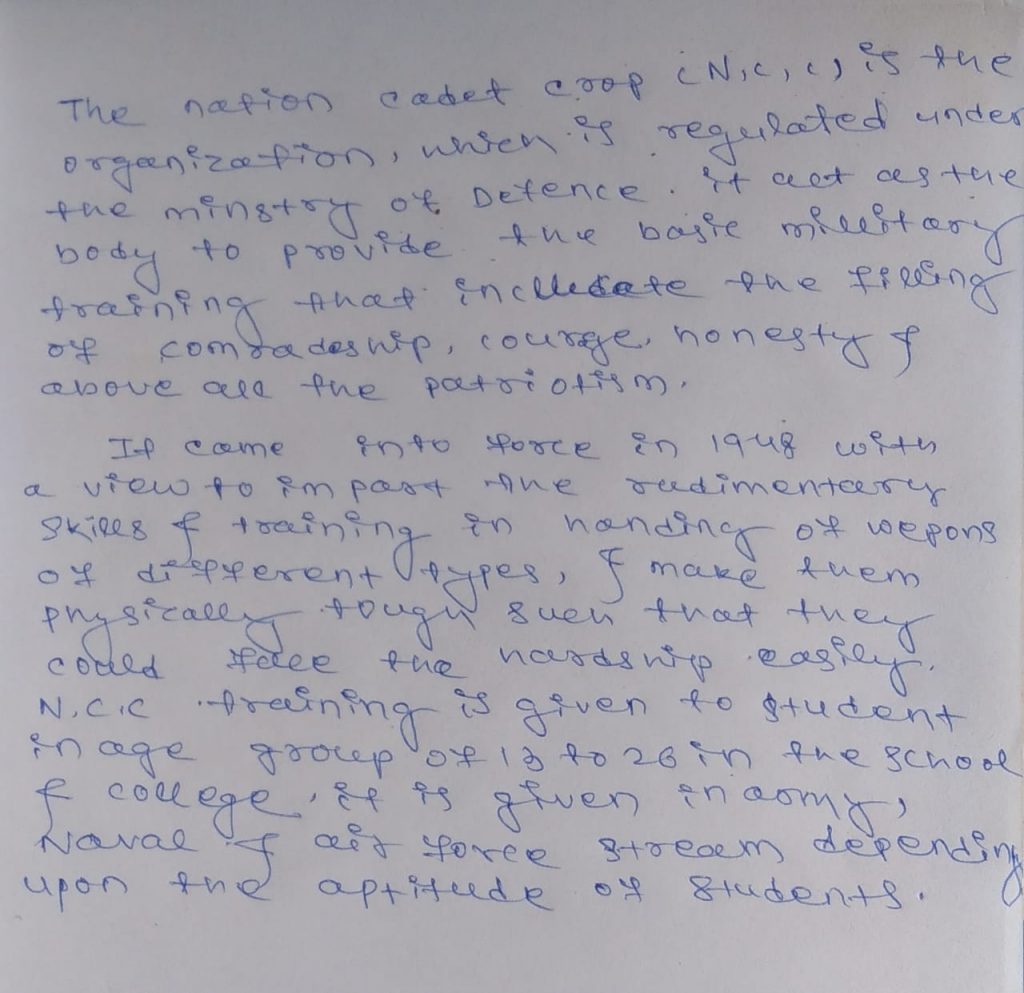 The nation cadet crop (N,C,C) is the
organization, which is regulated under
the minstry of Defence. it act as the
body to provide the basic millitary
training that includate the filling
of comradeship, courge, honesty &
above all the patriotism.
It came into force in 1948 with
a view to impart the rudimentary
skills & training in handing of wepons
of different types, & make them
physically tough such that they
could face the hardship easily.
N.C.C training is given to student
in age group of 13 to 26 in the school
& college, it is given in army,
Naval & air force stream depending
upon the aptitude of students.